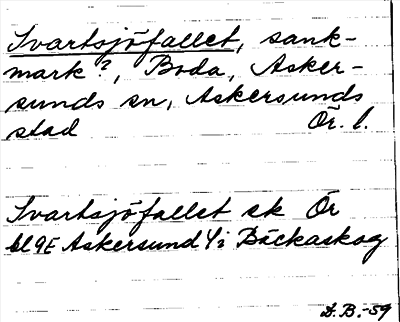 Svartsjöfallet, sank-
mark?, Boda, Asker-
sunds sn, Askersunds
stad Ör. l.
Svartsjöfallet sk Ör
bl 9E Askersund 4i Bäckaskog
D.B.-59